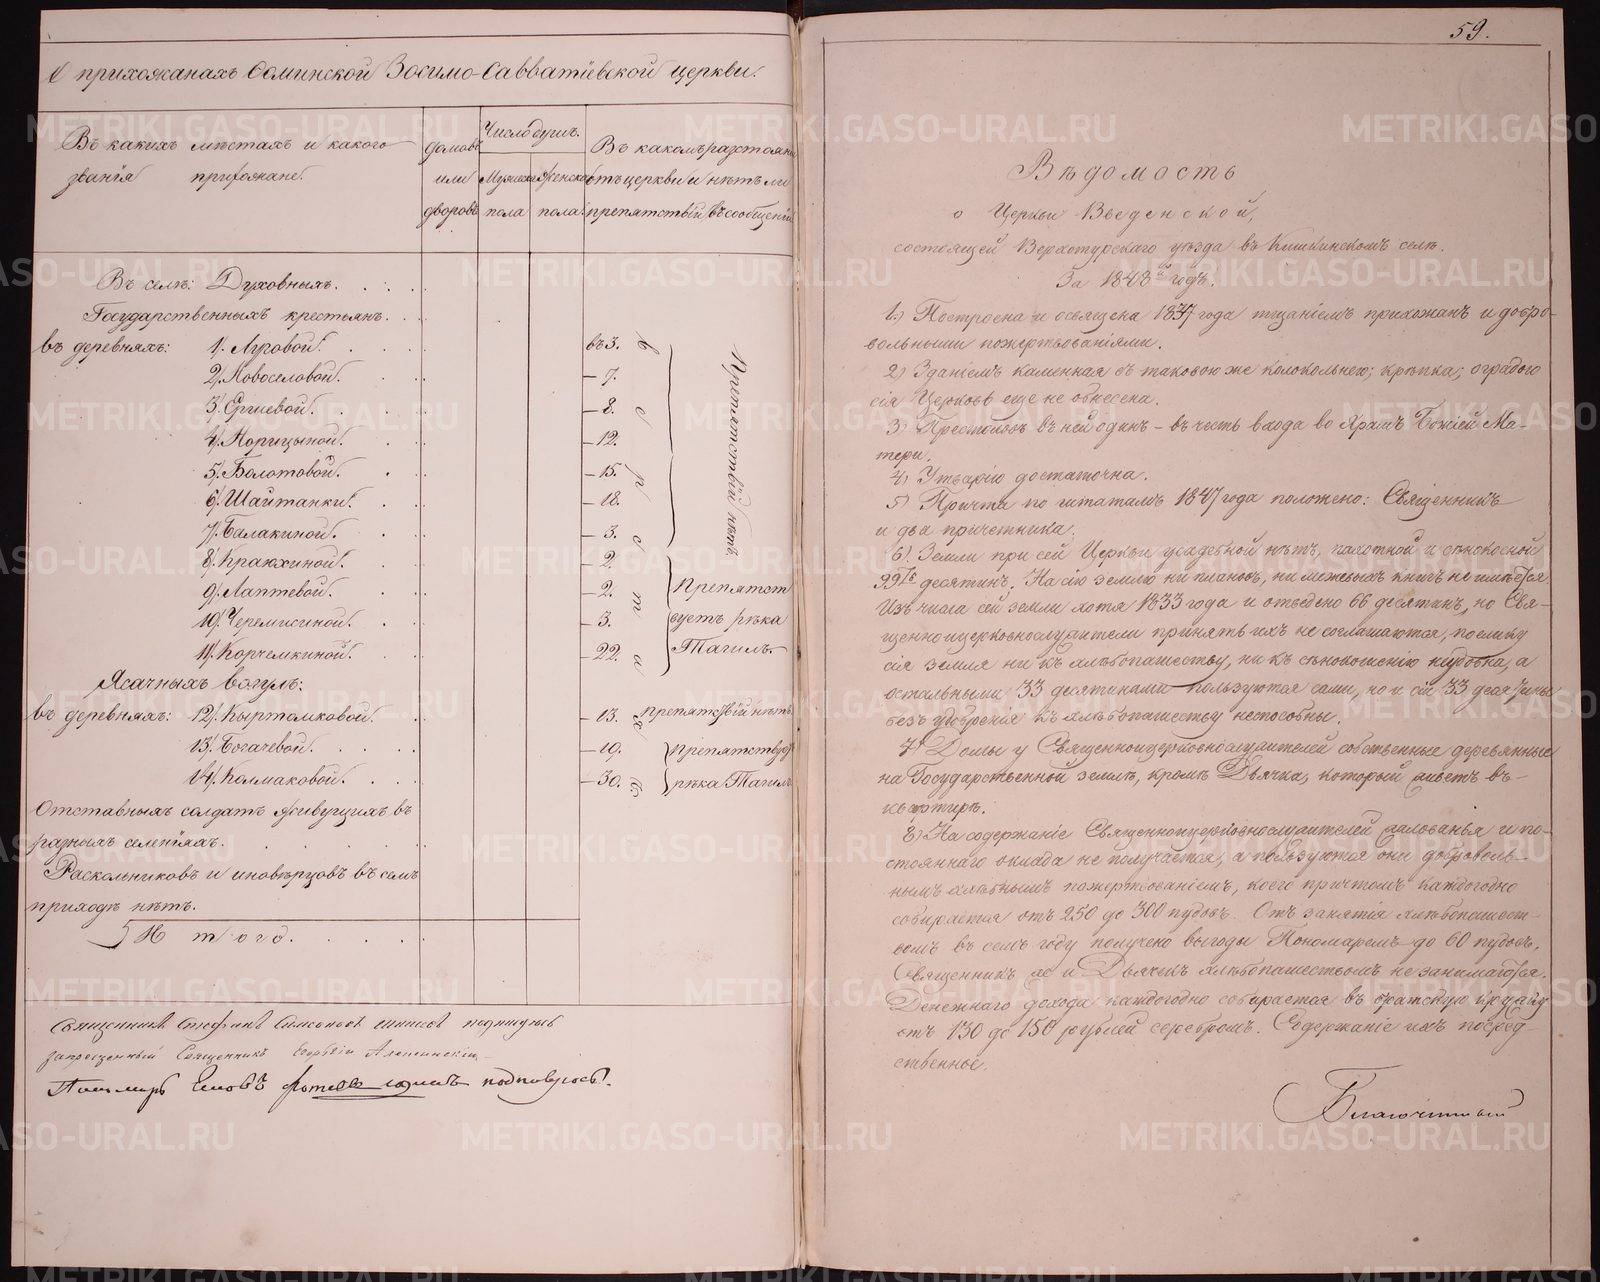 О прихожанахъ Соминской Зосимо-Савватіевской церкви.
Въ какихъ мѣстахъ и какого
званія прихожане.
домовъ
или
дворовъ
Число душъ.
Мужеска
пола
Женска
пола
Въ какомъ разстояніи
отъ церкви и нѣтъ ли
препятствій въ сообщеніи
Въ селѣ: Духовныхъ.
Государственныхъ крестьянъ.
въ деревняхъ: 1. Луговой. въ 3.
2. Новоселовой. – 7.
3. Ергиевой. – 8.
4. Морицыной. – 12.
5. Болотовой. – 15.
6. Шайтанки. – 18.
7. Балакиной. – 3.
8. Кракхиной. – 2.
9. Лаптевой. – 2.
10. Черемисиной. – 3.
11. Корчемкиной. – 22.
верстахъ
Препятствій нѣтъ
Препятст
вуетъ рѣка
Тагилъ.
Ясачныхъ вогулъ:
въ деревняхъ: 12. Кыртомковой. – 13. препятствій нѣтъ.
13. Богачевой. – 19. препятствуетъ
14. Колмаковой. – 30. рѣка Тагилъ
Отставныхъ солдатъ живущихъ въ
разныхъ селеніяхъ.
Раскольниковъ и иновѣрцовъ въ семъ
приходѣ нѣтъ.
Итого.
Священникъ Стефанъ Симоновъ подписуюсь
запрещенный Священникъ Георгій
Пономарь подписуюсь.
59.
Вѣдомость
о Церкви Введенской,
состоящей Верхотурскаго уѣзда въ Кишкинскомъ селѣ.
За 1848й годъ.
1.) Построена и освящена 1837 года тщаніемъ прихожанъ и добро-
вольными пожертвованіями.
2) Зданіемъ каменная съ таковою же колокольнею; крѣпка; оградою
сія Церковь еще не обнесена.
3) Престоловъ въ ней одинъ – въ честь входа во Храмъ Божіей Ма-
тери.
4) Утварію достаточна.
5) Причта по штатамъ 1847 года положено: Священникъ
и два причетника.
6) Земли при сей Церкви усадебной нѣтъ, пахотной и сѣнокосной
99ть десятинъ. На сію землю ни плановъ, ни межевыхъ книгъ не имѣется
Изъ числа сей земли хотя 1833 года и отведено 66 десятинъ, но Свя-
щенноицерковнослужители принять ихъ не соглашаются, поелику
сія земля ни къ хлѣбопашеству, ни къ сѣнокошенію неудобна, а
остальными 33 десятинами пользуются сами, но и сіи 33 десятины
безъ удобренія къ хлѣбопашеству неспособны.
7) Домы у Священноицерковнослужителей собственные деревянные
на Государственной землѣ, кромѣ Дьячка, который живетъ въ-
квартирѣ.
8) На содержаніе Священноицерковнослужителей жалованья и по-
стояннаго оклада не получается, а пользуются они доброволь-
нымъ хлѣбнымъ пожертвованіемъ, коего причтомъ каждогодно
собирается отъ 250 до 300 пудовъ. Отъ занятія хлѣбопашест-
вомъ въ семъ году получено выгоды Пономаремъ до 60 пудовъ.
Священникъ же и Дьячекъ хлѣбопашествомъ не занимаются.
Денежнаго дохода каждогодно собирается въ братскую кружку
отъ 130 до 150 рублей серебромъ. Содержаніе ихъ посред-
ственное.
Благочинный